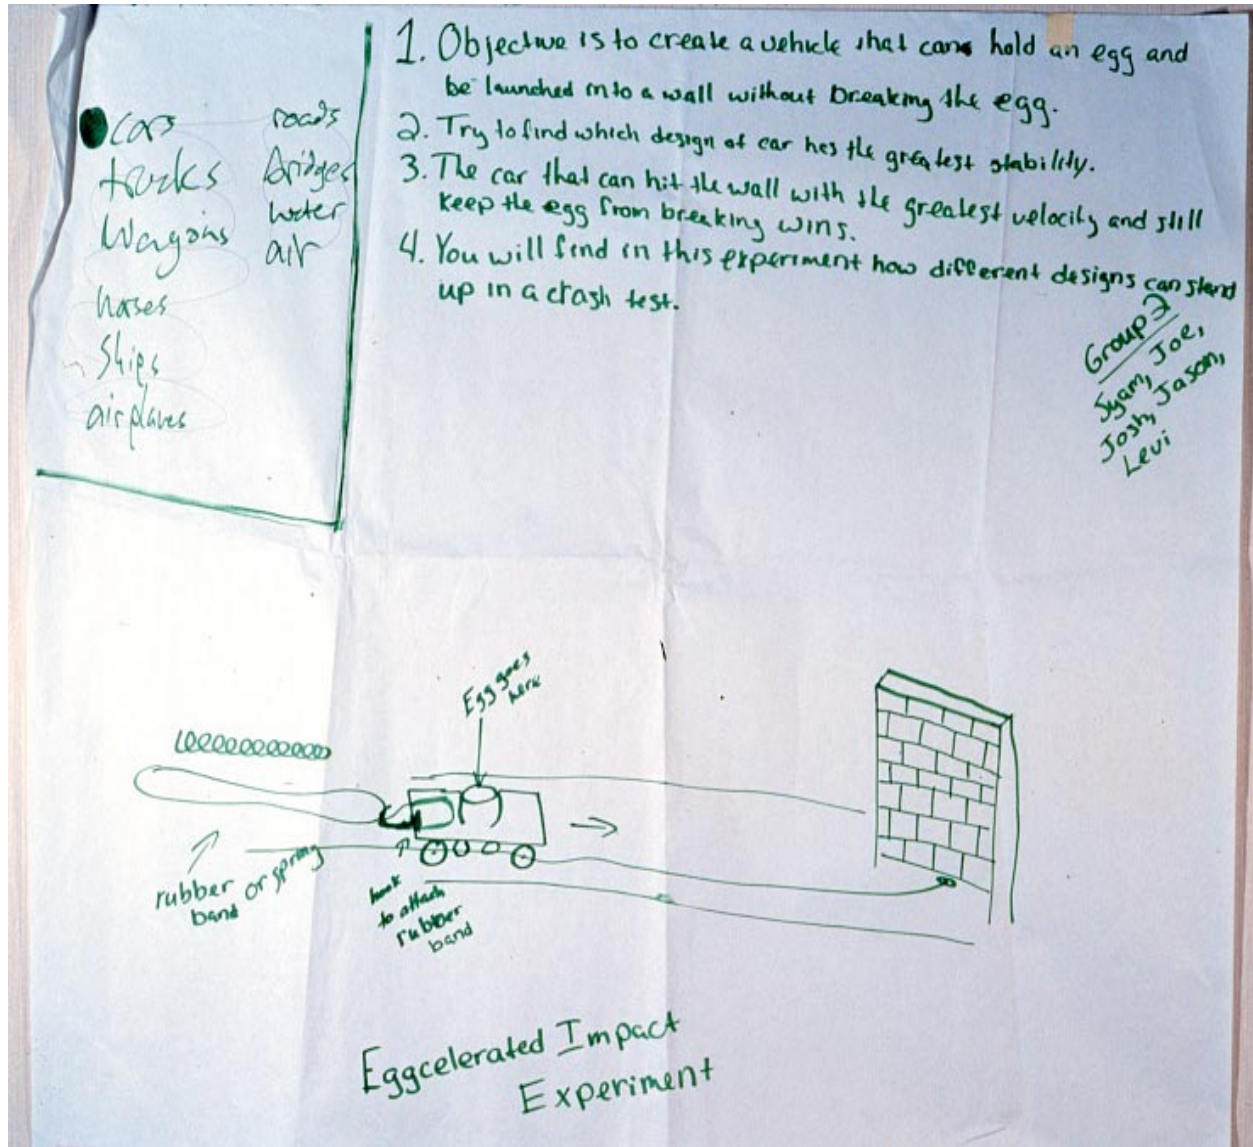 cars
trucks
Wagons
horses
Ships
airplanes
roads
bridges
water
air
1. Objective is to create a vehicle that can hold an egg and
be launched into a wall without breaking the egg.
2. Try to find which design of car has the greatest stability.
3. The car that can hit the wall with the greatest velocity and still
keep the egg from breaking wins.
4. You will find in this experiment how different designs can stand
up in a crash test.
Group 2
Joe,
Josh, Jason,
Levi
Egg goes
here
rubber
band
or spring
hook
to attach
rubber
band
Eggcelerated Impact
Experiment